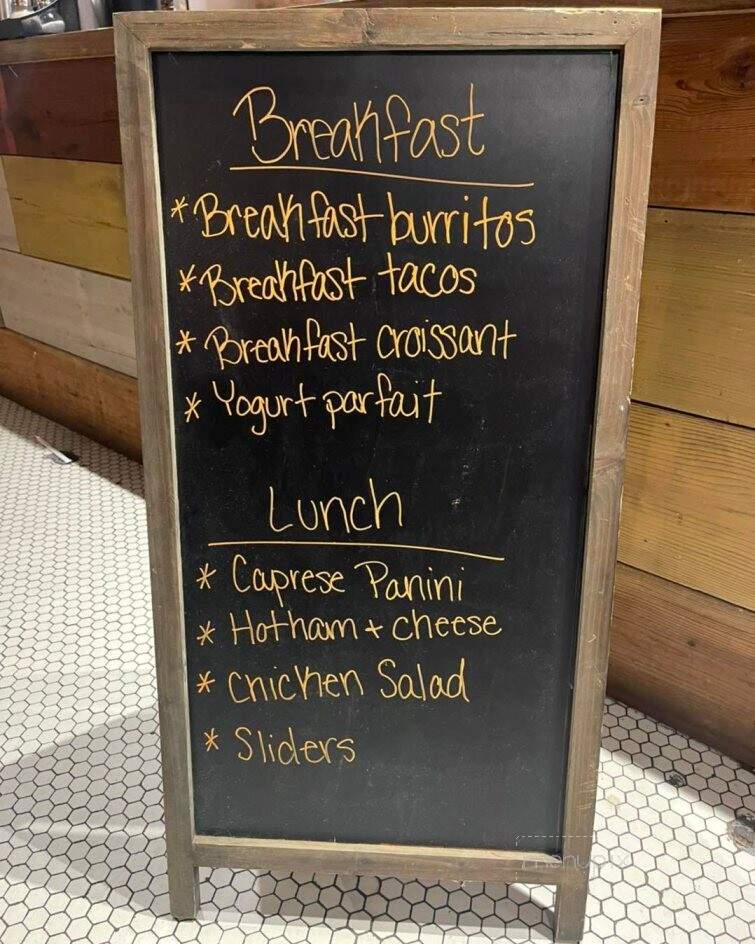 Breakfast
* Breakfast burritos
* Breakfast tacos
* Breakfast croissant
* Yogurt parfait
Lunch
* Caprese Panini
* Hot ham + cheese
* Chicken Salad
* Sliders
menupix